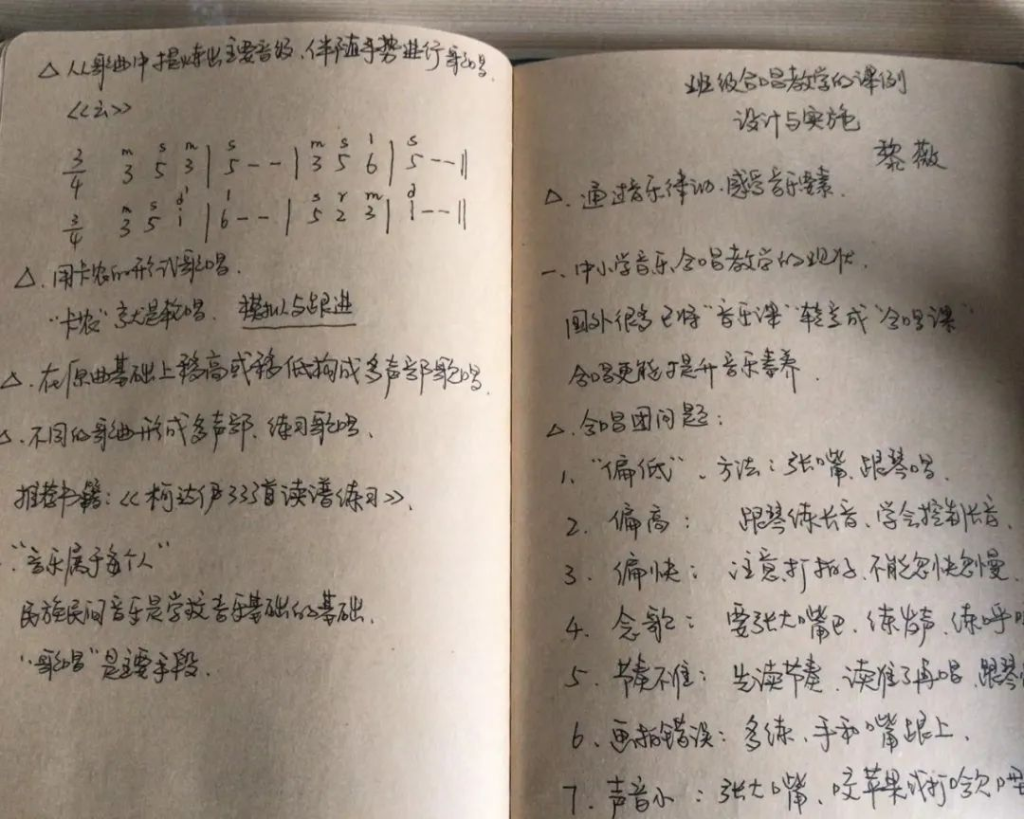 △ 从歌曲中提炼出主要音级、伴随手势进行歌唱.
《云》
m s m s m s l s
3/4 3 5 3 | 5 - - | 3 5 6 | 5 - - ‖
m s d' l s r m d
3/4 3 5 i | 6 - - | 5 2 3 | 1 - - ‖
△. 用卡农的形式歌唱.
"卡农"就是轮唱. 模拟与跟进
△. 在原曲基础上移高或移低构成多声部歌唱.
△. 不同的歌曲形成多声部、练习歌唱.
推荐书籍:《柯达伊333首读谱练习》.
"音乐属于每个人"
民族民间音乐是学校音乐基础的基础.
"歌唱"是主要手段.
班级合唱教学的课例
设计与实施
黎薇
△. 通过音乐律动.感受音乐要素.
一、中小学音乐合唱教学的现状.
国外很多已将"音乐课"转变成"合唱课"
合唱更能提升音乐素养.
△. 合唱团问题:
1. "偏低"、方法:张嘴、跟琴唱.
2. 偏高: 跟琴练长音、学会控制长音.
3. 偏快: 注意打拍子、不能忽快忽慢.
4. 念歌: 要张大嘴巴、练发声、练呼
5. 节奏不准: 先读节奏、读准了再唱、跟琴
6. 画拍错误: 多练、手和嘴跟上.
7. 声音小: 张大嘴、咬苹果或打哈欠